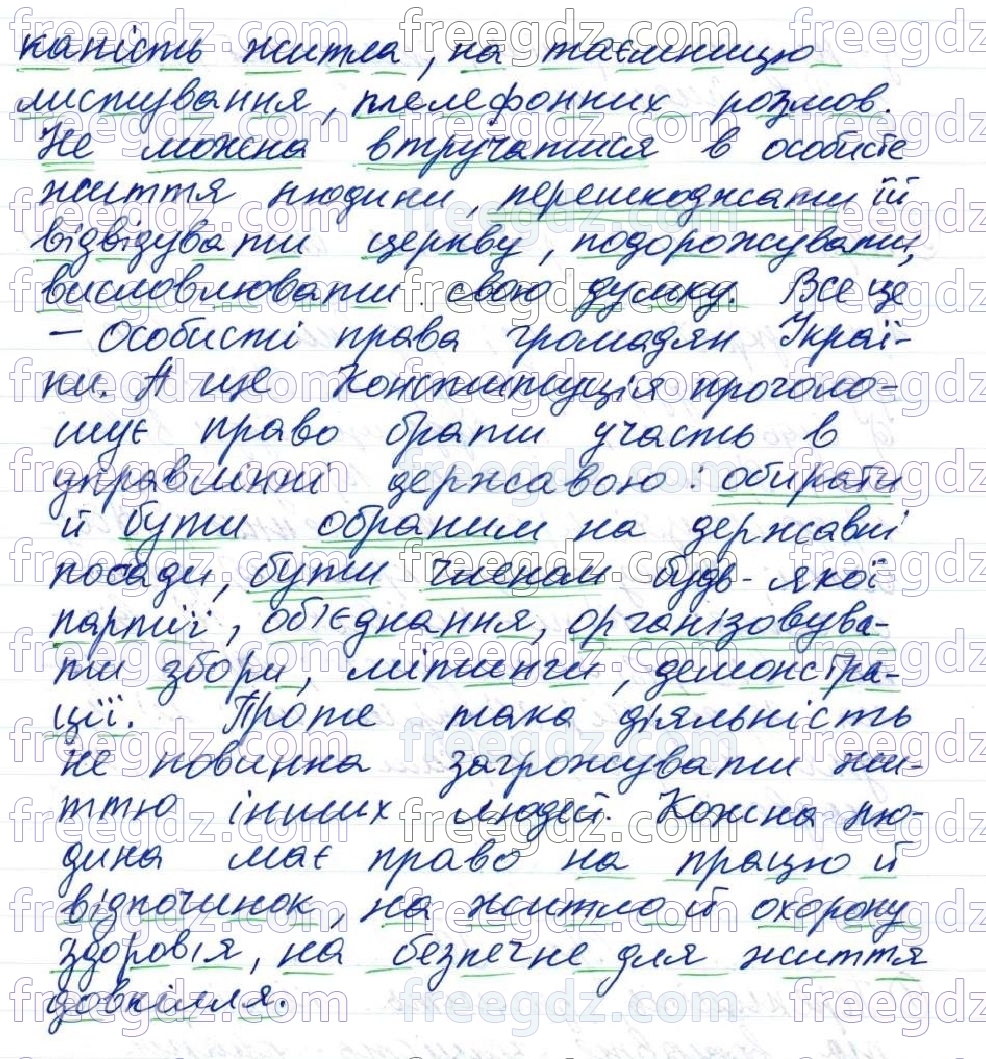 каність житла, на таємницю
листування, телефонних розмов.
Не можна втручатися в особисте
життя людини, перешкоджати їй
відвідувати церкву, подорожувати,
висловлювати свою думку. Все це
– особисті права громадян Украї-
ни. А ще Конституція проголо-
шує право брати участь в
управлінні державою: обирати
й бути обраним на державні
посади, бути членом будь-якої
партії, об'єднання, організовува-
ти збори, мітинги, демонстра-
ції. Проте така діяльність
не повинна загрожувати жи-
ттю інших людей. Кожна лю-
дина має право на працю й
відпочинок, на житло й охорону
здоров'я, на безпечне для життя
довкілля.